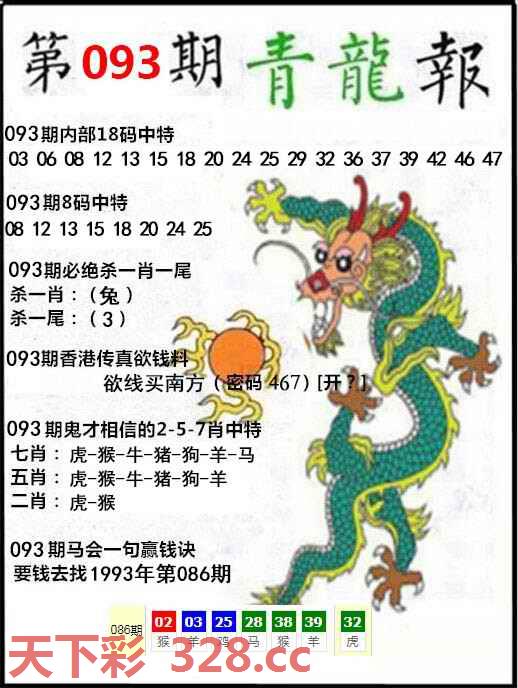 第093期青龍報
093期内部18码中特
03 06 08 12 13 15 18 20 24 25 29 32 36 37 39 42 46 47
093期8码中特
08 12 13 15 18 20 24 25
093期必绝杀一肖一尾
杀一肖：（兔）
杀一尾：（3）
093期香港传真欲钱料
欲线买南方（密码 467）[开？]
093期鬼才相信的2-5-7肖中特
七肖：虎-猴-牛-猪-狗-羊-马
五肖：虎-猴-牛-猪-狗-羊
二肖：虎-猴
093期马会一句赢钱诀
要钱去找1993年第086期
086期 02 03 25 28 38 39 32
猴 羊 鸡 马 猴 羊 虎
天下彩 328.cc